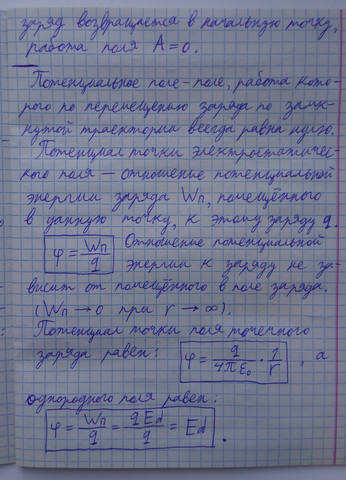 заряд возвращается в начальную точку,
работа поля A = 0.
Потенциальное поле - поле, работа кото-
рого по перемещению заряда по замк-
нутой траектории всегда равна нулю.
Потенциал точки электростатичес-
кого поля — отношение потенциальной
энергии заряда Wп, помещённого
в данную точку, к этому заряду q.
φ = Wп/q Отношение потенциальной
энергии к заряду не за-
висит от помещённого в поле заряда.
(Wп → 0 при r → ∞).
Потенциал точки поля точечного
заряда равен: φ = q/4πε₀ · 1/r , а
однородного поля равен:
φ = Wп/q = qEd/q = Ed .